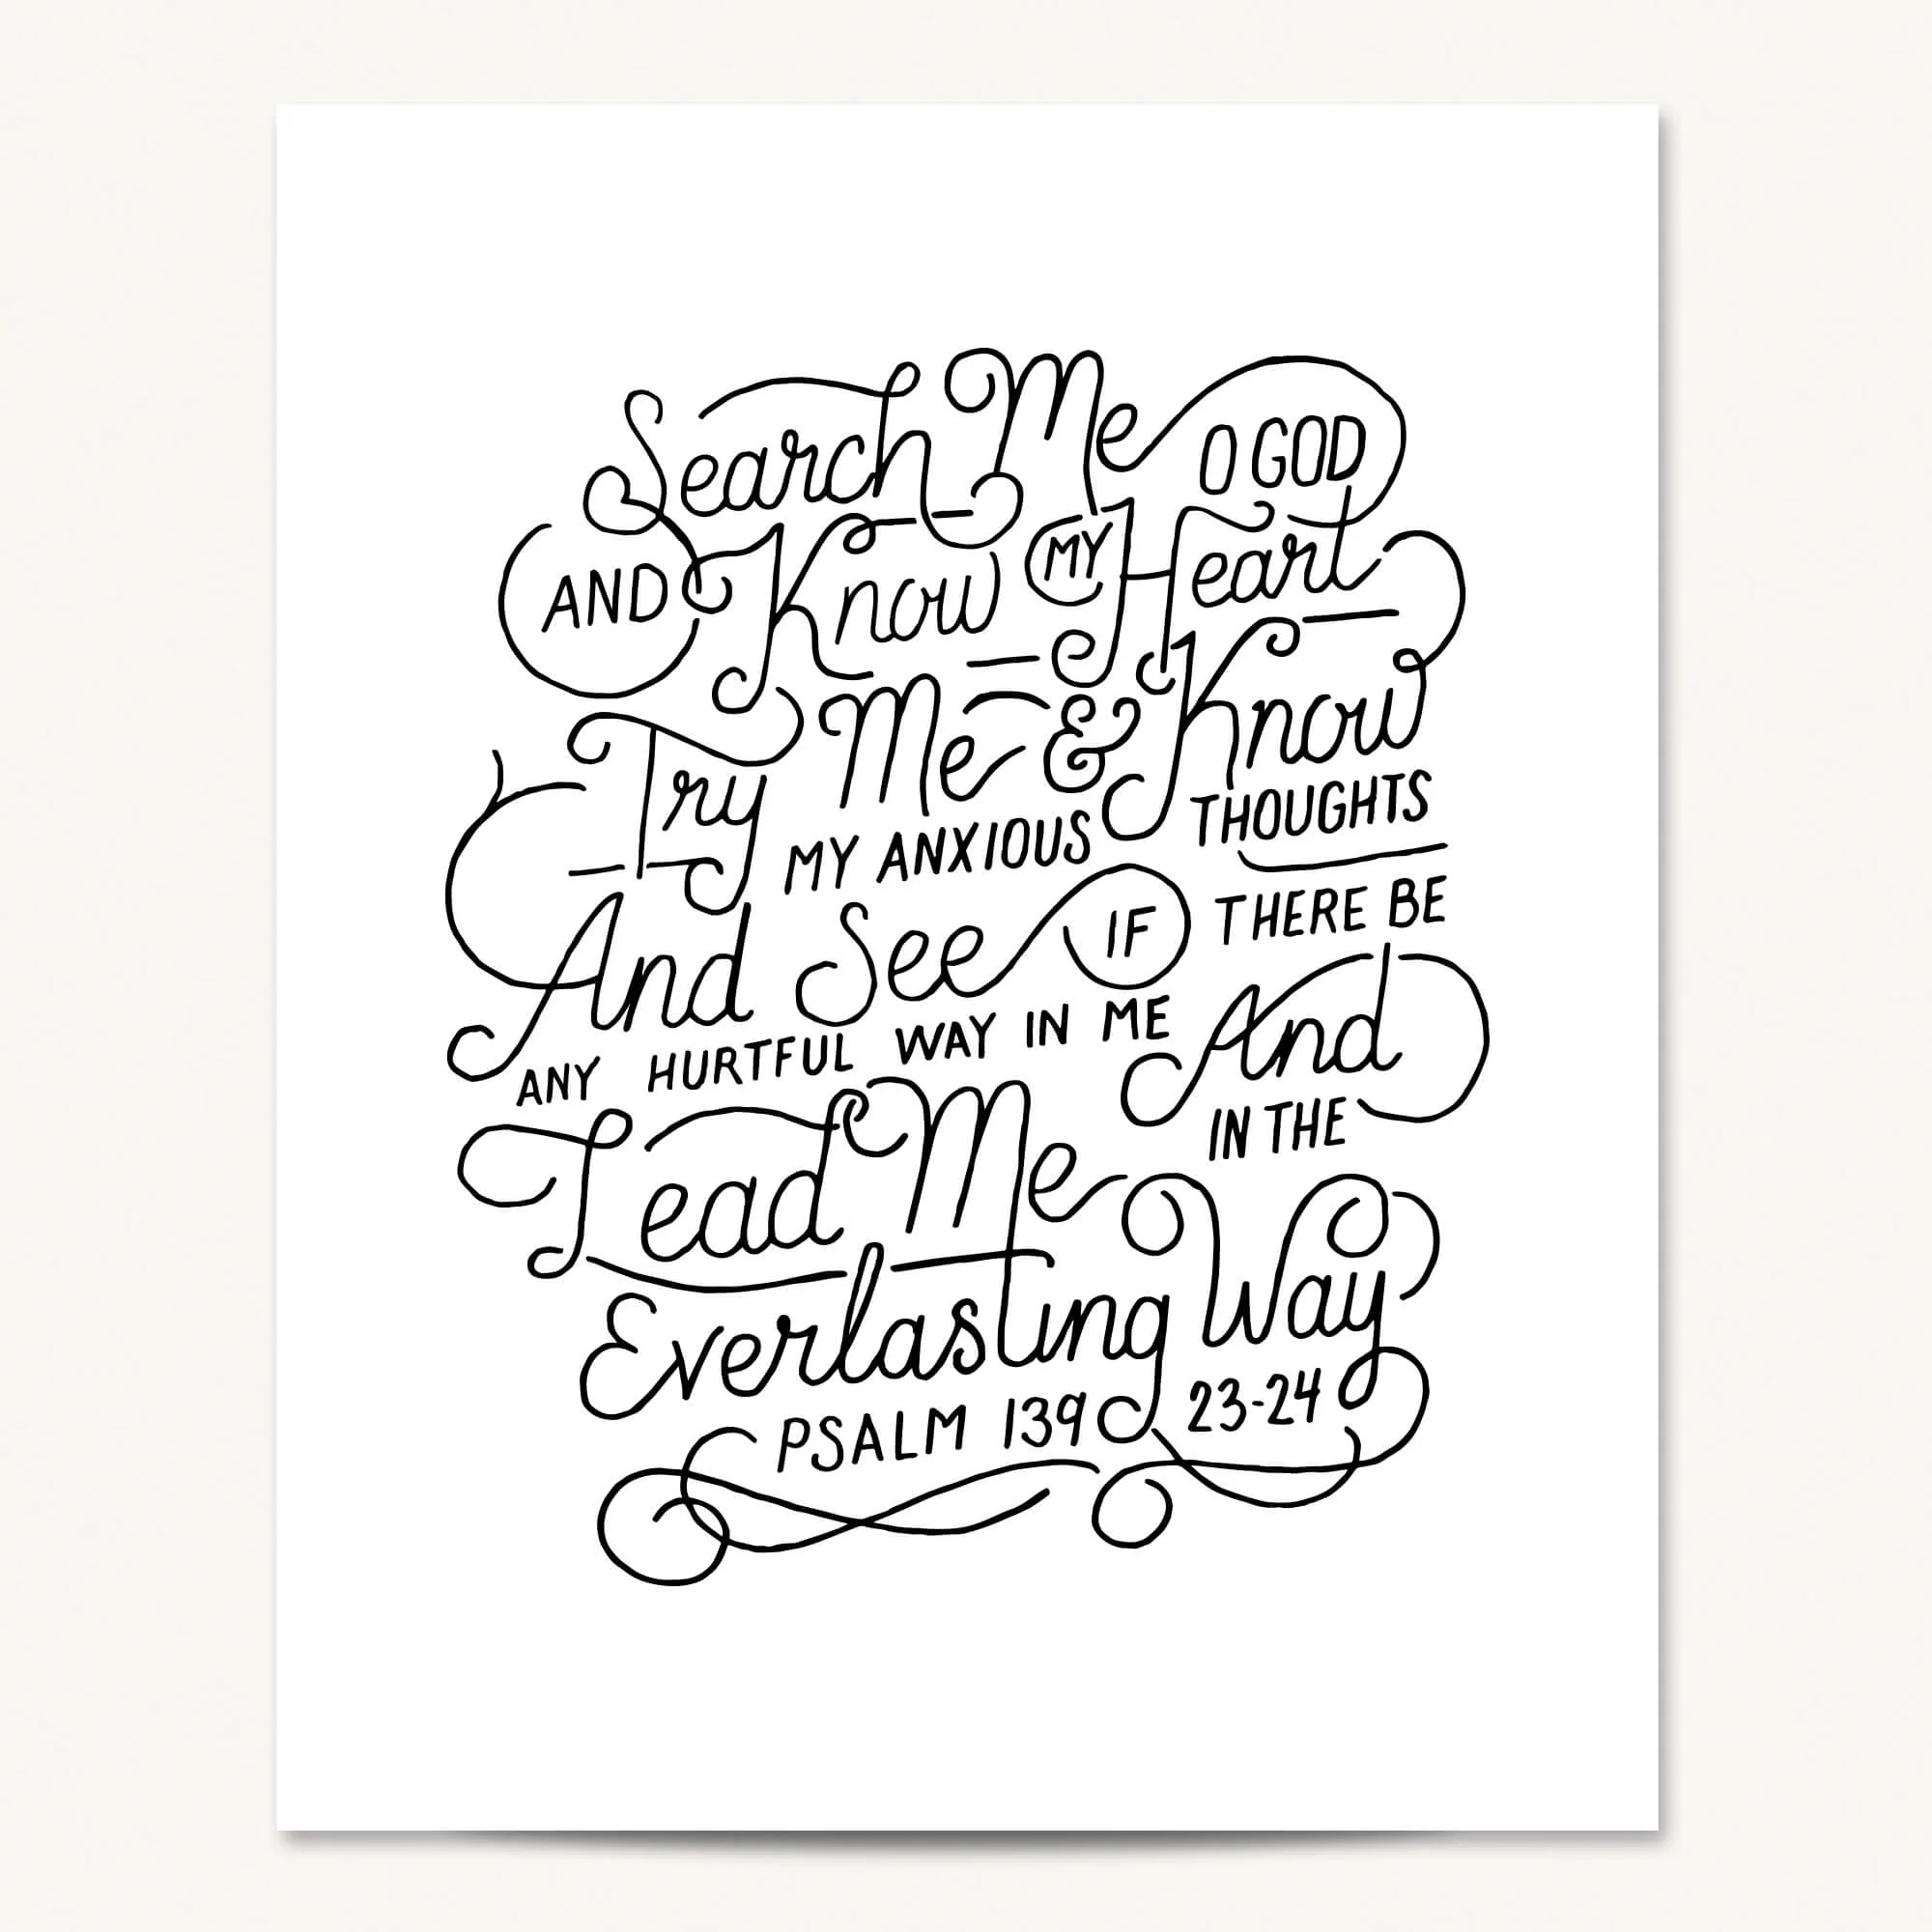 Search Me O GOD
AND Know MY Heart
Try Me & Know
MY ANXIOUS THOUGHTS
And See IF THERE BE
ANY HURTFUL WAY IN ME And
Lead Me IN THE
Everlasting Way
PSALM 139 23-24